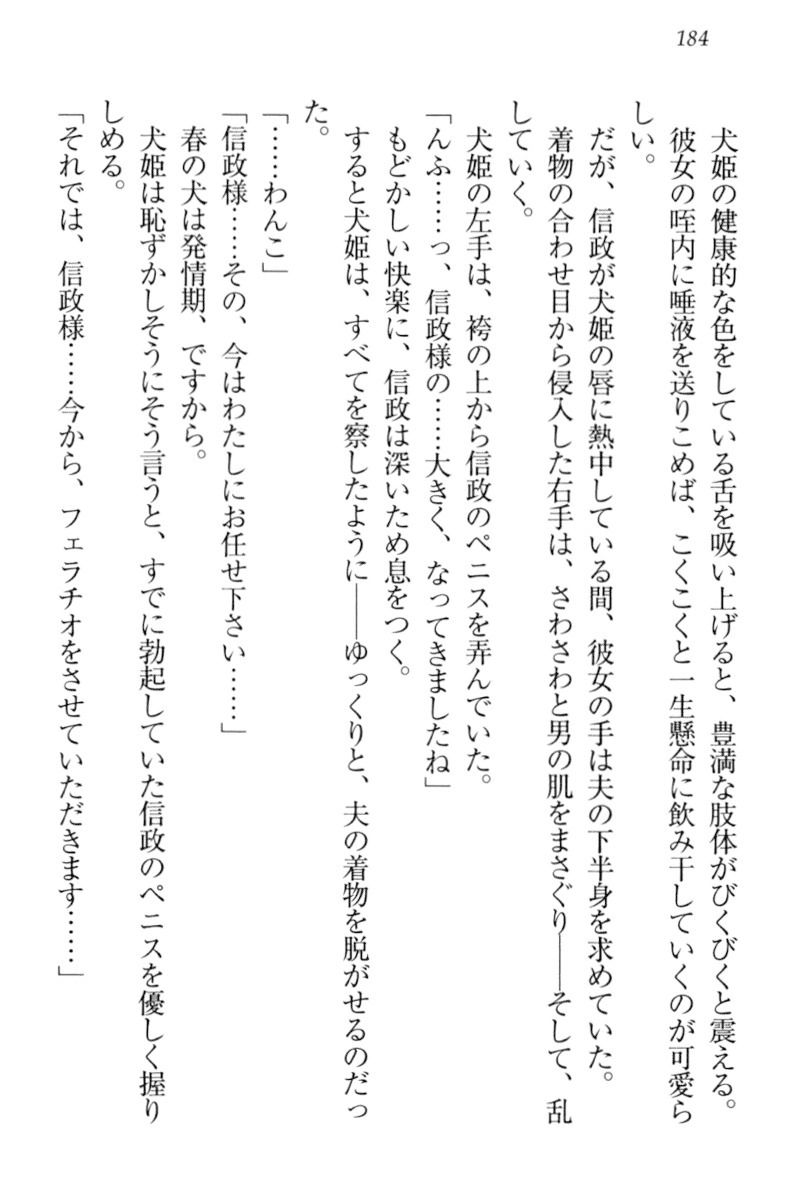 184
犬姫の健康的な色をしている舌を吸い上げると、豊満な肢体がびくびくと震える。
彼女の咥内に唾液を送りこめば、こくこくと一生懸命に飲み干していくのが可愛ら
しい。
だが、信政が犬姫の唇に熱中している間、彼女の手は夫の下半身を求めていた。
着物の合わせ目から侵入した右手は、さわさわと男の肌をまさぐり――そして、乱
していく。
犬姫の左手は、袴の上から信政のペニスを弄んでいた。
「んふ……っ、信政様の……大きく、なってきましたね」
もどかしい快楽に、信政は深いため息をつく。
すると犬姫は、すべてを察したように――ゆっくりと、夫の着物を脱がせるのだっ
た。
「……わんこ」
「信政様……その、今はわたしにお任せ下さい……」
春の犬は発情期、ですから。
犬姫は恥ずかしそうにそう言うと、すでに勃起していた信政のペニスを優しく握り
しめる。
「それでは、信政様……今から、フェラチオをさせていただきます……」